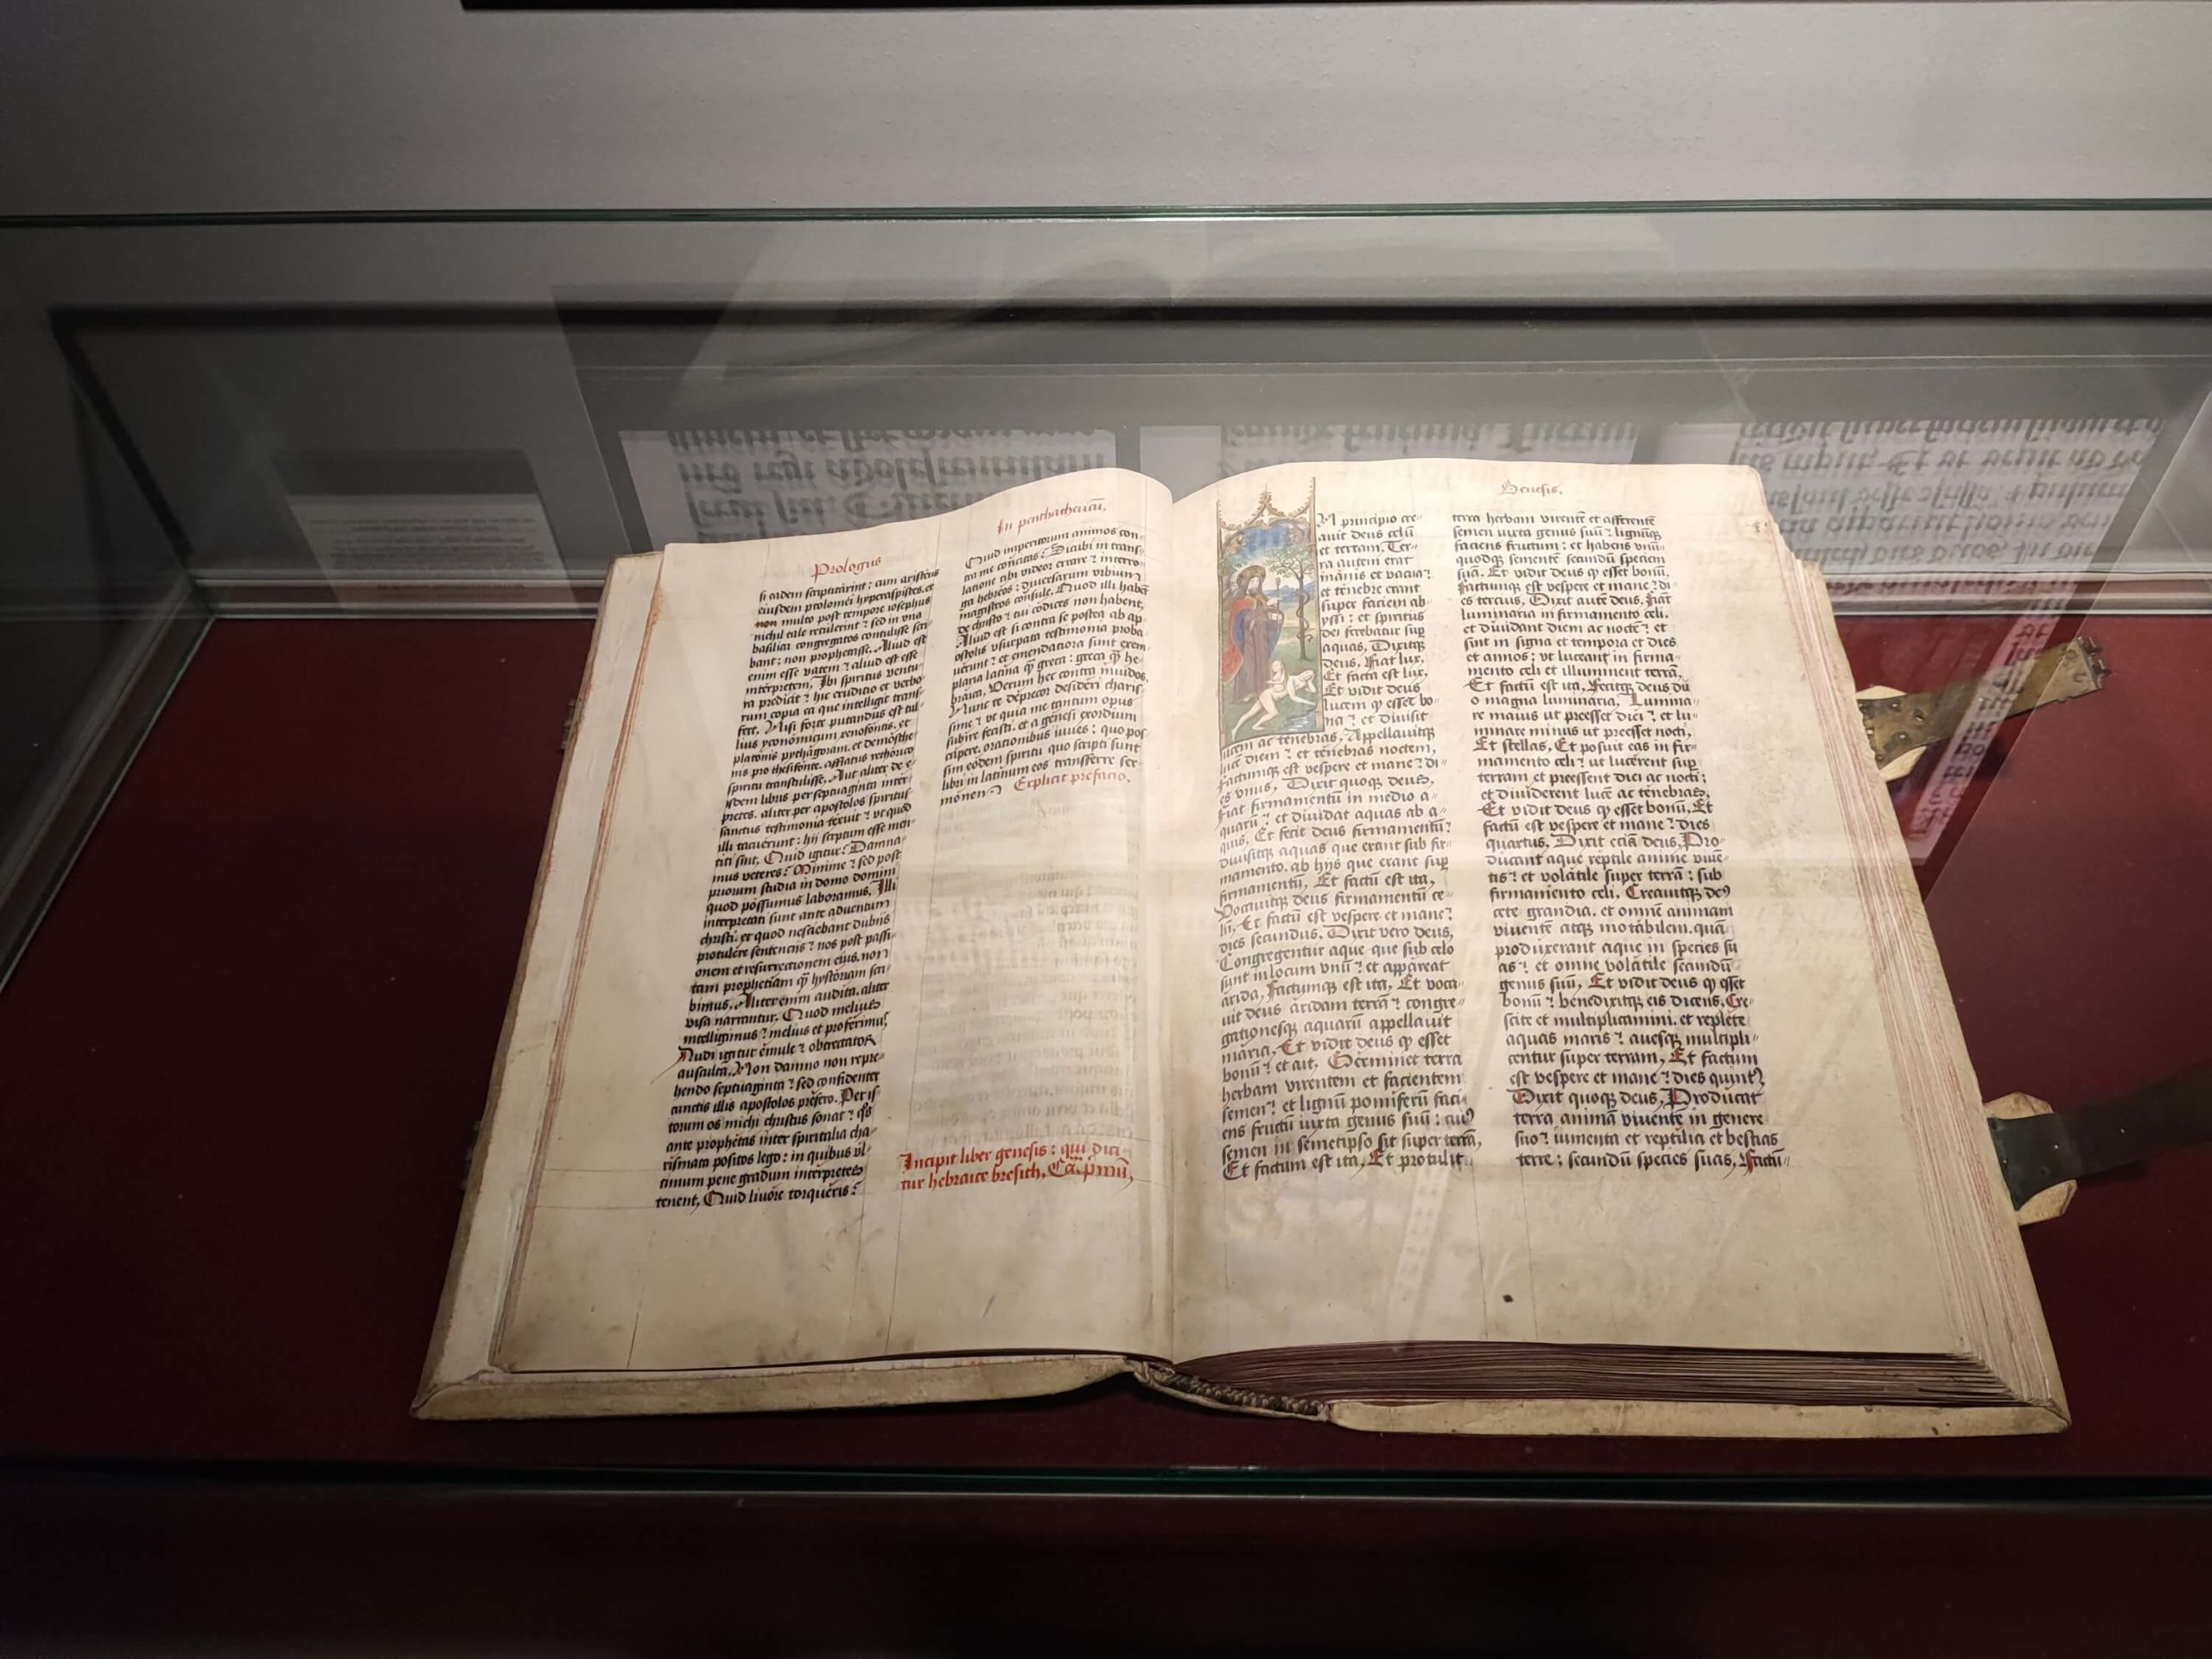 Prologus
si eadem scriptitarint : cum aristeus
eiusdem ptolomei hyperaspistes. et
non multo post tempore iosephus
nichil tale retulerint : sed in vna
basilica congregatos contulisse scri-
bant : non prophetasse. Aliud est
enim esse vatem : aliud est esse
interpretem. Ibi spiritus ventu-
ra predicit : hic eruditio et verbo-
rum copia ea que intelligit trans-
fert. Nisi forte putandus est tul-
lius yconomicum xenofontis. et
platonis pythagoram. et demosthe-
nis pro thesifonte. afflatus rethorico
spiritu transtulisse. Aut aliter de e-
isdem libris per septuaginta inter-
pretes. aliter per apostolos spiritus
sanctus testimonia texuit : vt quod
illi tacuerunt : hij scriptum esse men-
titi sint. Quid igitur? Damna-
mus veteres? Minime : sed post
priorum studia in domo domini
quod possumus laboramus. Illi
interpretati sunt ante aduentum
christi. et quod nesciebant dubijs
protulere sentencijs : nos post passi-
onem et resurrectionem eius. non
tam prophetiam qȝ hystoriam scri-
bimus. Aliter enim audita. aliter
visa narrantur. Quod melius
intelligimus : melius et proferimus.
Audi igitur emule : obtrectator
ausculta. Non damno non repre-
hendo septuaginta : sed confidenter
cunctis illis apostolos prefero. Per is-
torum os michi christus sonat : qͦs
ante prophetas inter spiritalia cha-
rismata positos lego : in quibus vl-
timum pene gradum interpretes
tenent. Quid liuore torqueris?
In penthatheucū.
Quid imperitorum animos con-
tra me concitas? Sicubi in trans-
latione tibi videor errare : interro-
ga hebreos : diuersarum vrbium
magistros consule. Quod illi habēt
de christo : tui codices non habent.
Aliud est si contra se postea ab ap-
ostolis vsurpata testimonia proba-
uerunt : et emendatiora sunt exem-
plaria latina qȝ greca : greca qȝ he-
braica. Verum hec contra inuidos.
Nunc te deprecor desideri charis-
sime : vt quia me tantum opus
subire fecisti. et a genesi exordium
capere. orationibus iuues : quo pos-
sim eodem spiritu quo scripti sunt
libri in latinum eos transferre ser-
monen. Explicit prefacio.
Incipit liber genesis : qui dici-
tur hebraice bresith. Ca. pmū.
Genesis.
N principio cre-
auit deus celū
et terram. Ter-
ra autem erat
inanis et vacua :
et tenebre erant
super faciem ab-
yssi : et spiritus
dei ferebatur sup
aquas. Dixitqȝ
deus. Fiat lux.
Et facta est lux.
Et vidit deus
lucem qȝ esset bo-
na : et diuisit
lucem ac tenebras. Appellauitqȝ
lucē diem : et tenebras noctem.
Factumqȝ est vespere et mane : di-
es vnus. Dixit quoqȝ deus.
Fiat firmamentū in medio a-
quarū : et diuidat aquas ab a-
quis. Et fecit deus firmamentū :
diuisitqȝ aquas que erant sub fir-
mamento. ab hijs que erant sup
firmamentū. Et factū est ita.
Vocauitqȝ deus firmamentū ce-
lū. Et factū est vespere et mane :
dies secundus. Dixit vero deus.
Congregentur aque que sub celo
sunt in locum vnū : et appareat
arida. Factumqȝ est ita. Et voca-
uit deus aridam terrā : congre-
gationesqȝ aquarū appellauit
maria. Et vidit deus qȝ esset
bonū : et ait. Germinet terra
herbam virentem et facientem
semen : et lignū pomiferū faci-
ens fructū iuxta genus suū : cuiꝰ
semen in semetipso sit super terrā.
Et factum est ita. Et protulit
terra herbam virentē et afferentē
semen iuxta genus suū : lignūqȝ
faciens fructum : et habens vnū-
quodqȝ sementē secundū speciem
suā. Et vidit deus qȝ esset bonū.
Factumqȝ est vespere et mane : di-
es tercius. Dixit autē deus. Fiāt
luminaria in firmamento celi.
et diuidant diem ac noctē : et
sint in signa et tempora et dies
et annos : vt luceant in firma-
mento celi et illuminent terrā.
Et factū est ita. Fecitqȝ deus du
o magna luminaria. Lumina-
re maius ut preesset diei : et lu-
minare minus ut preesset nocti.
Et stellas. Et posuit eas in fir-
mamento celi : ut lucerent sup
terram et preessent diei ac nocti :
et diuiderent lucē ac tenebras.
Et vidit deus qȝ esset bonū. Et
factū est vespere et mane : dies
quartus. Dixit eciā deus. Pro-
ducant aque reptile anime viuē-
tis : et volatile super terrā : sub
firmamento celi. Creauitqȝ deꝰ
cete grandia. et omnē animam
viuentē atqȝ motabilem. quā
produxerant aque in species su
as : et omne volatile secundū
genus suū. Et vidit deus qȝ esset
bonū : benedixitqȝ eis dicens. Cre-
scite et multiplicamini. et replete
aquas maris : auesqȝ multipli-
centur super terram. Et factum
est vespere et mane : dies quintꝰ.
Dixit quoqȝ deus. Producat
terra animā viuentē in genere
suo : iumenta et reptilia et bestias
terre : secundū species suas. Factū-